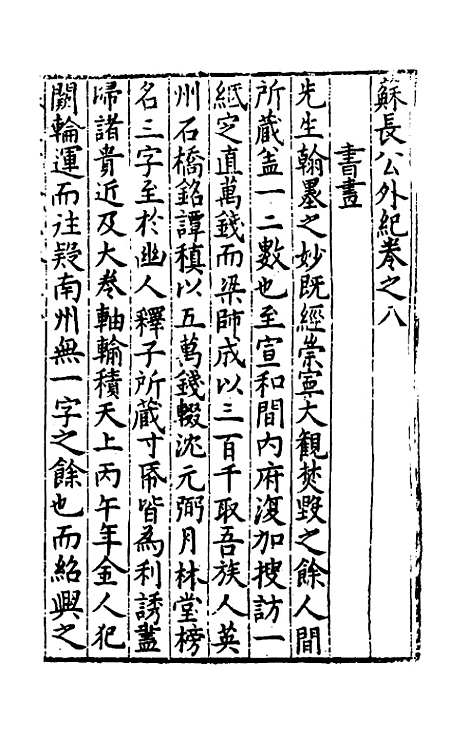 蘇長公外紀卷之八
書畫
先生翰墨之妙既經崇寧大觀焚毀之餘人間
所蔵盖一二數也至宣和間内府復加搜訪一
紙定直萬錢而梁師成以三百千取吾族人英
州石橋銘譚稹以五萬錢輟沈元弼月林堂榜
名三字至於幽人釋子所蔵寸紙皆為利誘盡
歸諸貴近及大卷軸輸積天上丙午年金人犯
闕輪運而往疑南州無一字之餘也而紹興之